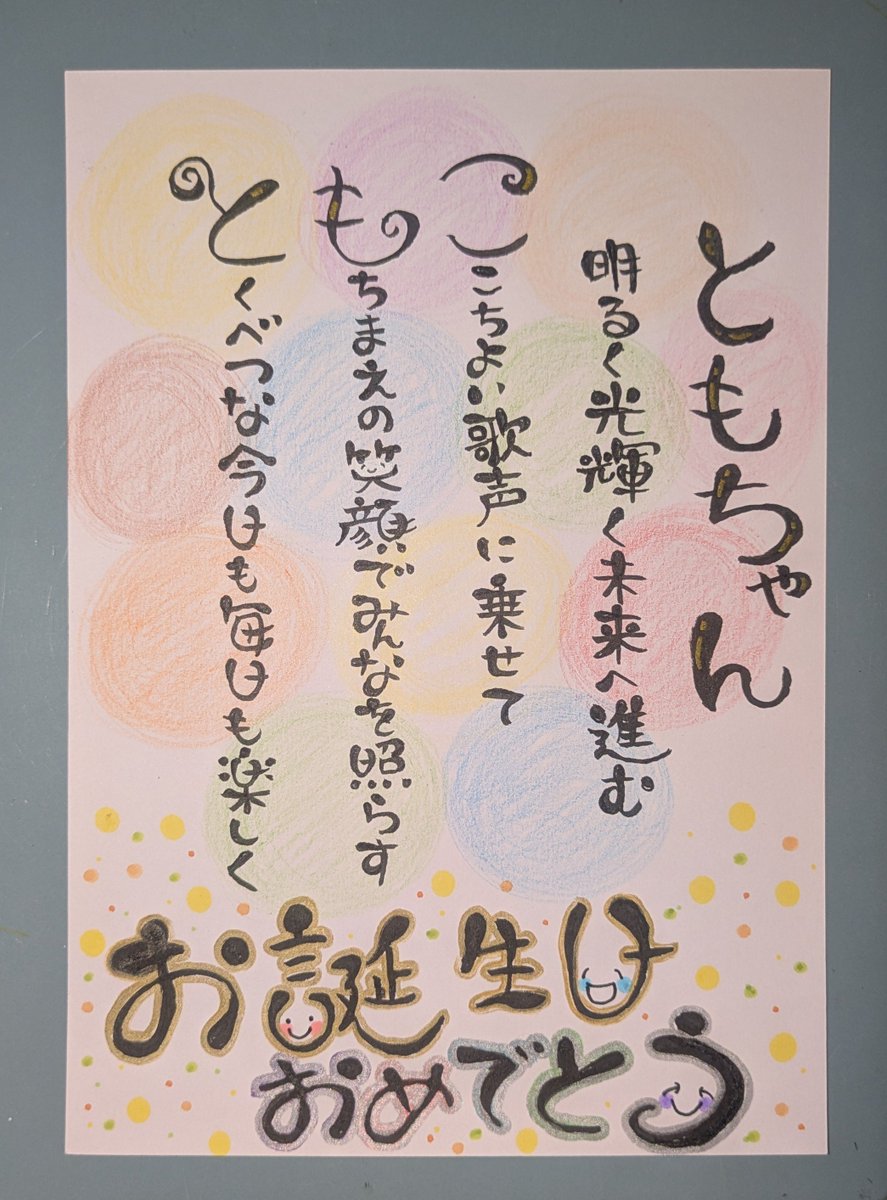 ともちゃん
明るく光輝く未来へ進む
ここちよい歌声に乗せて
もちまえの笑顔でみんなを照らす
とくべつな今日も毎日も楽しく
お誕生日
おめでとう